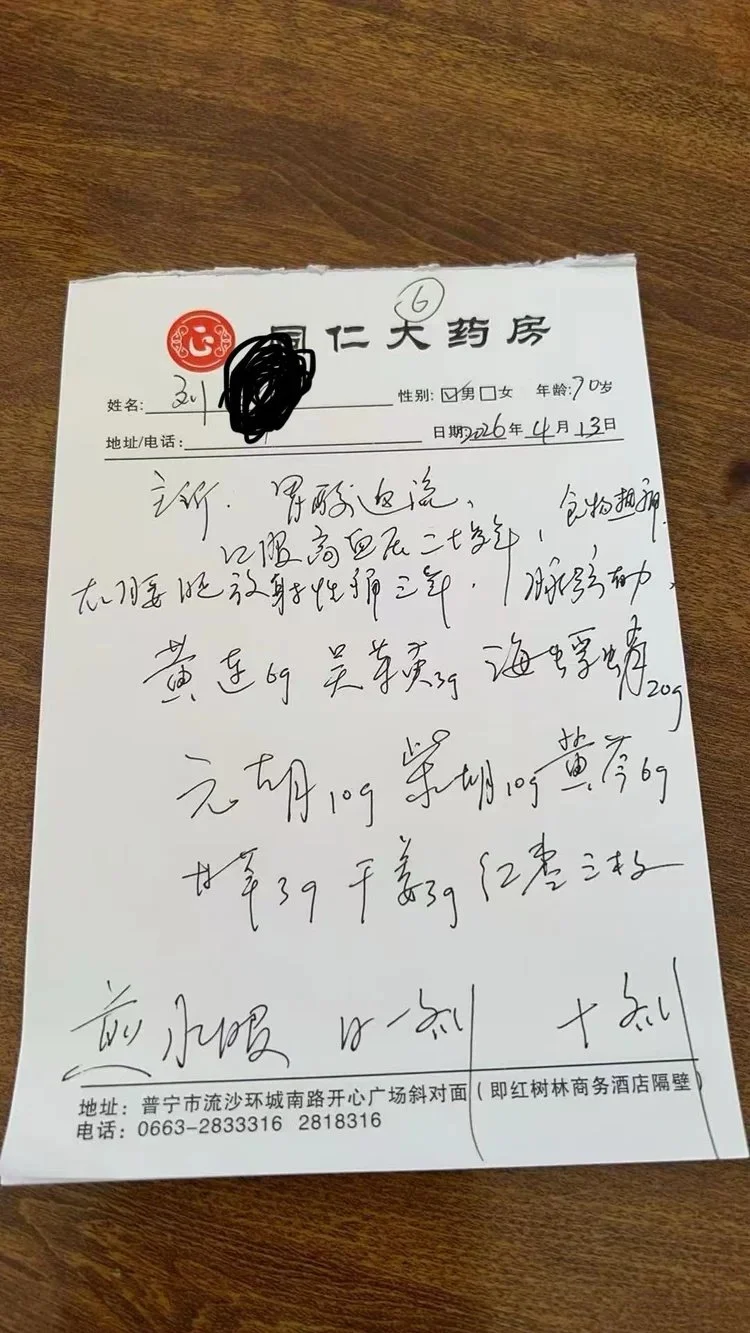 6
同仁大药房
姓名: 刘 性别: ☑男□女 年龄: 70岁
地址/电话: 日期: 2026年4月13日
主诉. 胃酸返流、
口服高血压二十多年, 食物
右腰 放射性痛三年. 脉弦有力、
黄连6g 吴茱萸3g 海螵蛸20g
元胡10g 柴胡10g 黄芩6g
甘草3g 干姜3g 红枣三枚
煎水服 日一剂 十剂
地址: 普宁市流沙环城南路开心广场斜对面(即红树林商务酒店隔壁)
电话: 0663-2833316 2818316